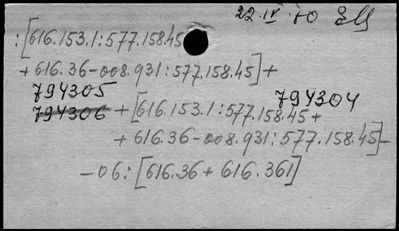 22.IV.70
:[616.153.1:577.158.45
+616.36-008.931:577.158.45]+
794305 794304
794306 +[616.153.1:577.158.45+
+616.36-008.931:577.158.45]-
-06:[616.36+616.361]